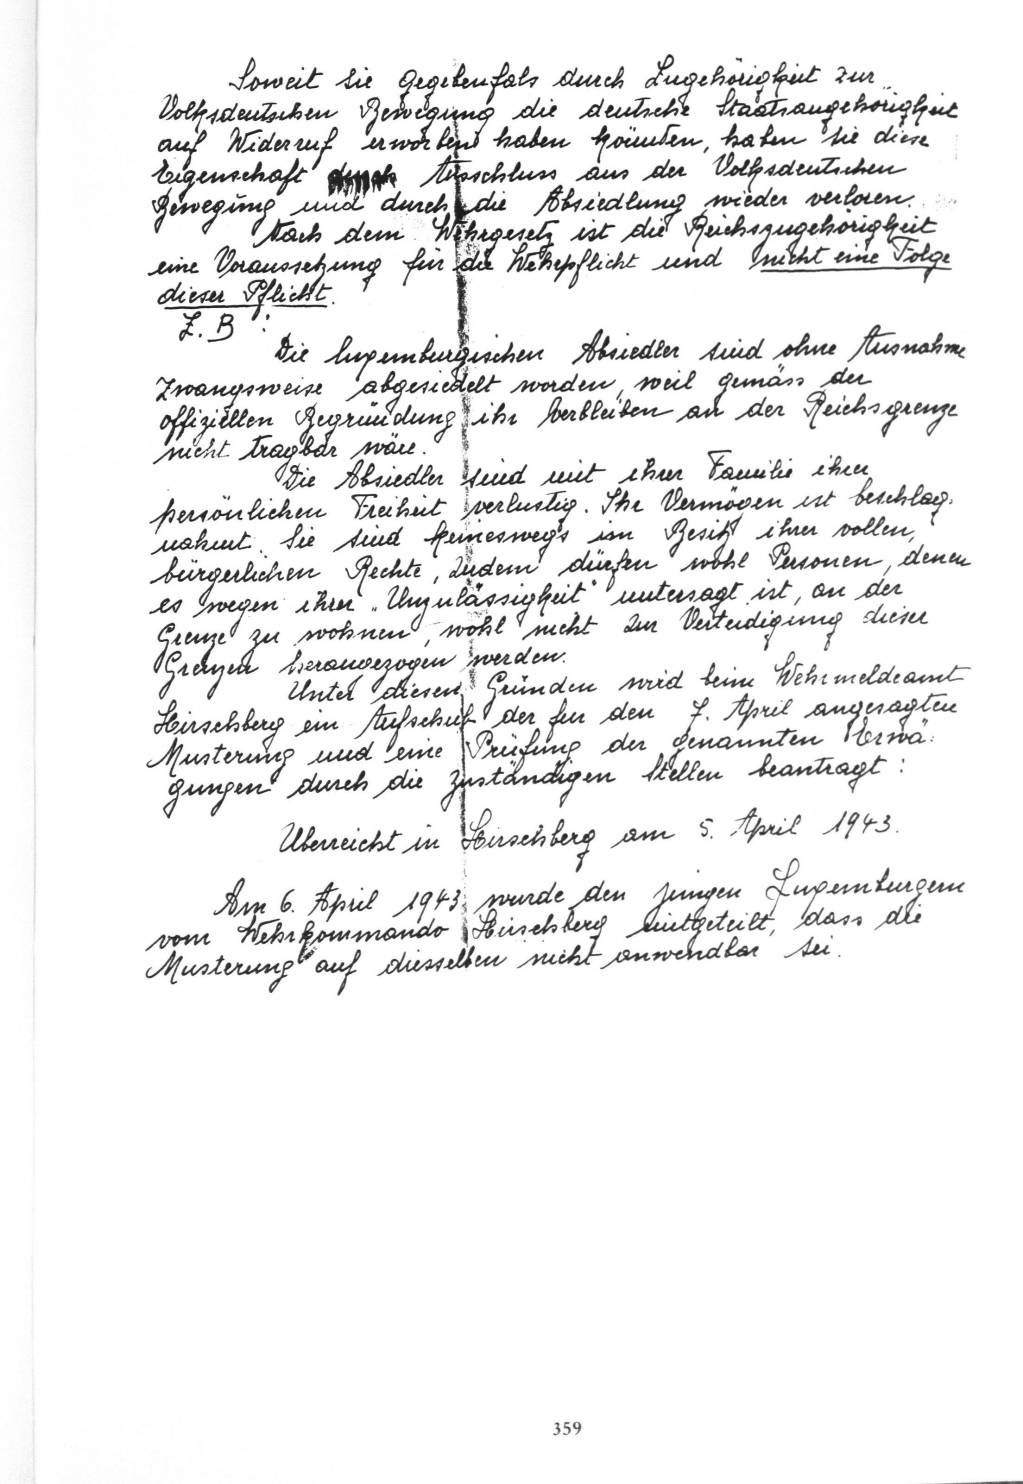 Soweit sie gegebenfals durch Zugehörigkeit zur
Volksdeutschen Bewegung die deutsche Staatsangehörigkeit
auf Widerruf erworben haben könnten, haben sie diese
Eigenschaft durch Ausschluss aus der Volksdeutschen
Bewegung und durch die Absiedlung wieder verloren.
Nach dem Wehrgesetz ist die Reichszugehörigkeit
eine Voraussetzung für die Wehrpflicht und nicht eine Folge
dieser Pflicht.
Z. B :
Die luxemburgischen Absiedler sind ohne Ausnahme
Zwangsweise abgesiedelt worden, weil gemäss der
offiziellen Begründung ihr Verbleiben an der Reichsgrenze
nicht tragbar wäre.
Die Absiedler sind mit ihrer Familie ihrer
persönlichen Freiheit verlustig. Ihr Vermögen ist beschlag-
nahmt. Sie sind keineswegs im Besitz ihrer vollen,
bürgerlichen Rechte, zudem dürfen wohl Personen, denen
es wegen ihrer "Unzulässigkeit" untersagt ist, an der
Grenze zu wohnen, wohl nicht zur Verteidigung dieser
Grenzen herangezogen werden.
Unter diesen Gründen wird beim Wehrmeldeamt
Hirschberg ein Aufschub der für den 7. April angesagten
Musterung und eine Prüfung der genannten Erwä-
gungen durch die zuständigen Stellen beantragt :
Überreicht in Hirschberg am 5. April 1943.
Am 6. April 1943 wurde den jungen Luxemburgern
vom Wehrkommando Hirschberg mitgeteilt, dass die
Musterung auf diesselben nicht anwendbar sei.
359